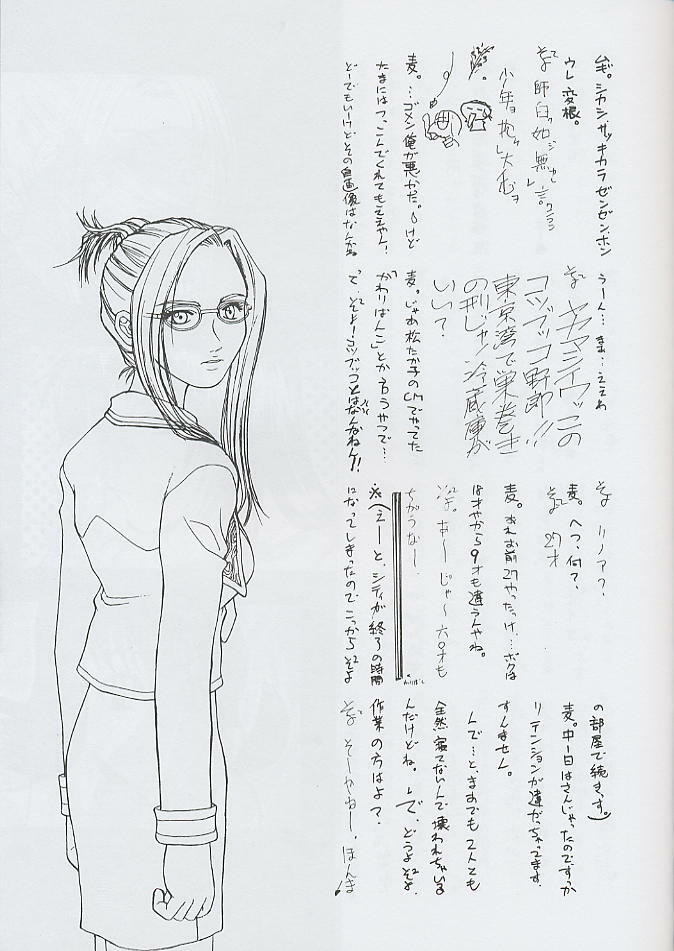 麦。シカシ、サッキカラゼンゼン、ホン
ウレ変根。
そよ 師曰
少年ョ抱ヶ大志ヲ
麦。…ゴメン俺が悪かった。けど
たまにはつっこんでくれてもええやん!
どーでもいーけどその自画像はなんだ。
うーん…まぁ…ええわ
そよ ヤマシイウッコの
コツブッコ野郎!!
東京湾で巣巻き
の刑じゃ!冷蔵庫が
いい?
麦。じゃあ松たか子のCMでやってた
「かわりばんこ」とか言うやつで…
で、そよ!コツブッコとはなんなねん!!
そよ リノア?
麦。へっ、何?
そよ 27才
麦。あれお前27やったっけ…ボクは
18才やから9才も違うんやね。
そよ。あ〜じゃ〜六〇才も
ちがうなー。
※(えーと、シティが終了の時間
になってしまったのでこっからそよ
の部屋で続きっす。)
麦。中一日はさんじゃったのですか
りテンションが違がっちゃってます。
すんません。
んで…と、まあでも2人とも
全然寝てないんで壊われちゃいる
んだけどね。で、どうよそよ、
作業の方はよ?
そよ そーやねー、ほんま